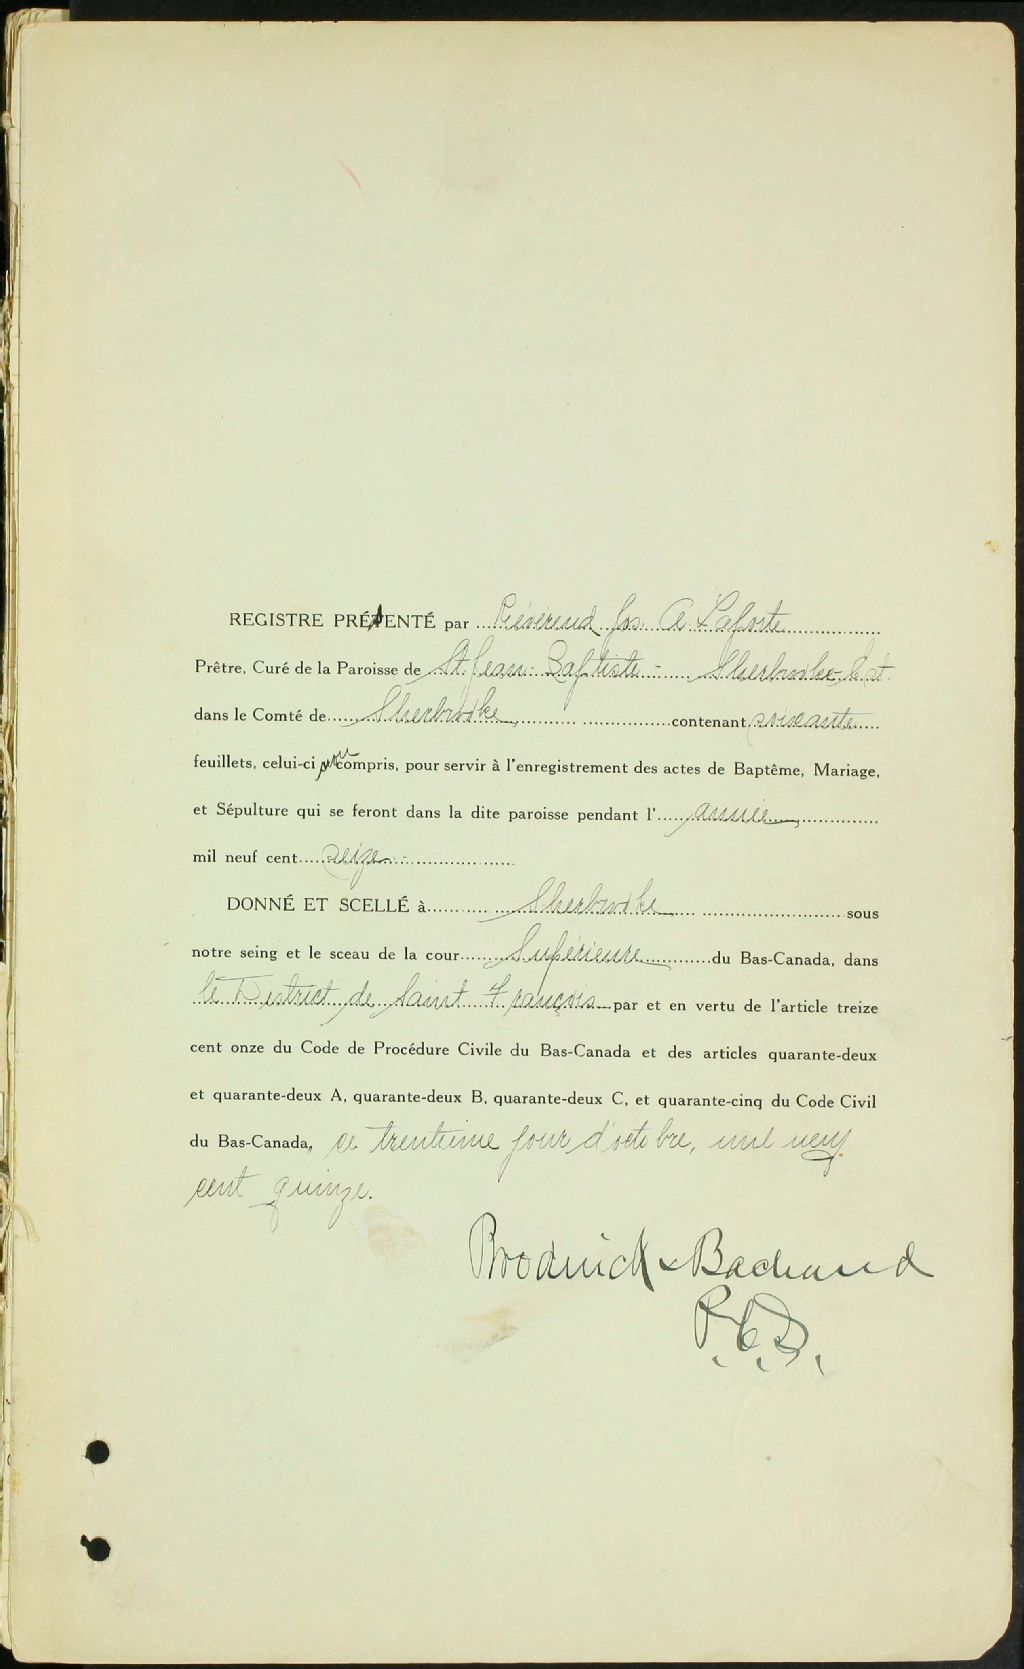 REGISTRE PRÉSENTÉ par Révérend Jos. A. Laforte
Prêtre, Curé de la Paroisse de St. Jean-Baptiste - Sherbrooke-Est.
dans le Comté de Sherbrooke contenant soixante
feuillets, celui-ci non compris, pour servir à l'enregistrement des actes de Baptême, Mariage,
et Sépulture qui se feront dans la dite paroisse pendant l' année
mil neuf cent seize
DONNÉ ET SCELLÉ à Sherbrooke sous
notre seing et le sceau de la cour Supérieure du Bas-Canada, dans
le District de Saint François par et en vertu de l'article treize
cent onze du Code de Procédure Civile du Bas-Canada et des articles quarante-deux
et quarante-deux A, quarante-deux B, quarante-deux C, et quarante-cinq du Code Civil
du Bas-Canada, ce trentième jour d'octobre, mil neuf
cent quinze.
Broderick & Bachand
P.C.S.